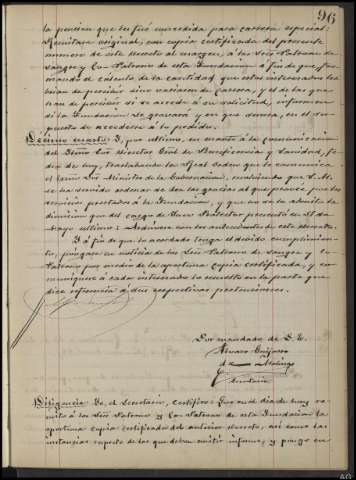 96
la pension que le fué concedida para carrera especial.
Remitase original, con copia certificada del presente
numero de este decreto al margen, á los Sres Patronos de
sangre y Co-Patrono de esta Fundacion á fin de que for-
mando el cálculo de la cantidad que estos interesados ha-
brian de percibir sino variasen de carrera, y el de las que
han de percibir si se accede á su solicitud, informen
si la Fundacion se gravará y en que suma, en el su-
puesto de accederse á lo pedido.
Décimo cuarto. Y, por último, en cuanto á la comunicacion
del Señor Sub Director Gral de Beneficencia y Sanidad, fe-
cha de hoy, trasladando la Real orden que le comunica
el Excmo Sr Ministro de la Gobernacion, resolviendo que S. M.
se ha servido ordenar se den las gracias al que provee por los
servicios prestados á la Fundacion, y que no se le admite la
dimision que del cargo de Juez Protector presentó en 31 de
Mayo último: Archívese con los antecedentes de este decreto.
Y á fin de que lo acordado tenga el debido cumplimien-
to, póngase en noticia de los Sres Patronos de sangre y Co-
Patrono por medio de la oportuna copia certificada, y co-
muníquese á cada interesado lo resuelto en la parte que
dice referencia á sus respectivas pretensiones.
Por mandado de S. S.
Alvaro
de Molina
Secretario
Diligencia. Yo, el Secretario, certifico: Que en el dia de hoy re-
mito á los Sres Patronos y Co-Patrono de esta Fundacion la
oportuna copia certificada del anterior decreto, así como las
instancias respecto de las que deben emitir informe, y pongo en